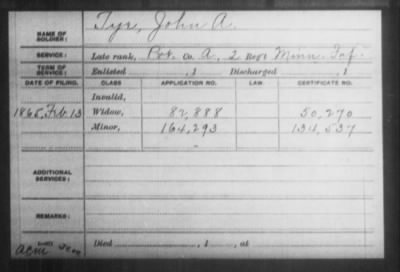 NAME OF SOLDIER: Tyr, John A.
SERVICE: Late rank, Pvt. Co. A, 2 Regt Minn. Inf.
TERM OF SERVICE: Enlisted , 1 Discharged , 1
DATE OF FILING. CLASS APPLICATION NO. LAW. CERTIFICATE NO.
Invalid,
1865, Feb. 13 Widow, 82,888 50,270
Minor, 164,293 134,537
ADDITIONAL SERVICES:
REMARKS:
Died , 1 , at